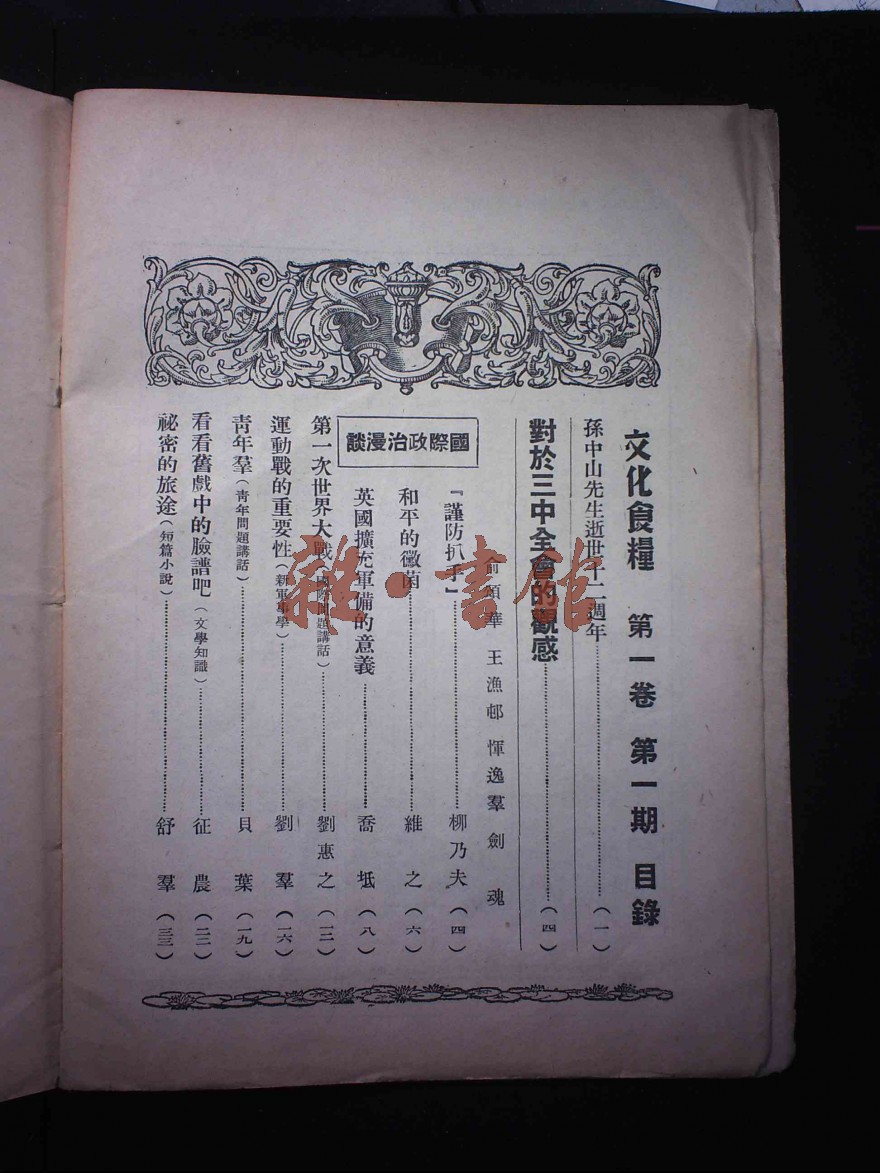 文化食糧 第一卷 第一期 目錄
孫中山先生逝世十二週年……(一)
對於三中全會的觀感……(四)
俞頌華 王漁邨 惲逸羣 劍魂
國際政治漫談
『謹防扒手』……柳乃夫(四)
和平的黴菌……維之(六)
英國擴充軍備的意義……喬坻(八)
第一次世界大戰(國際問題講話)……劉惠之(一三)
運動戰的重要性(新軍事學)……劉羣(一六)
靑年羣(靑年問題講話)……貝葉(一九)
看看舊戲中的臉譜吧(文學知識)……征農(二二)
祕密的旅途(短篇小說)……舒羣(三三)
雜·書館